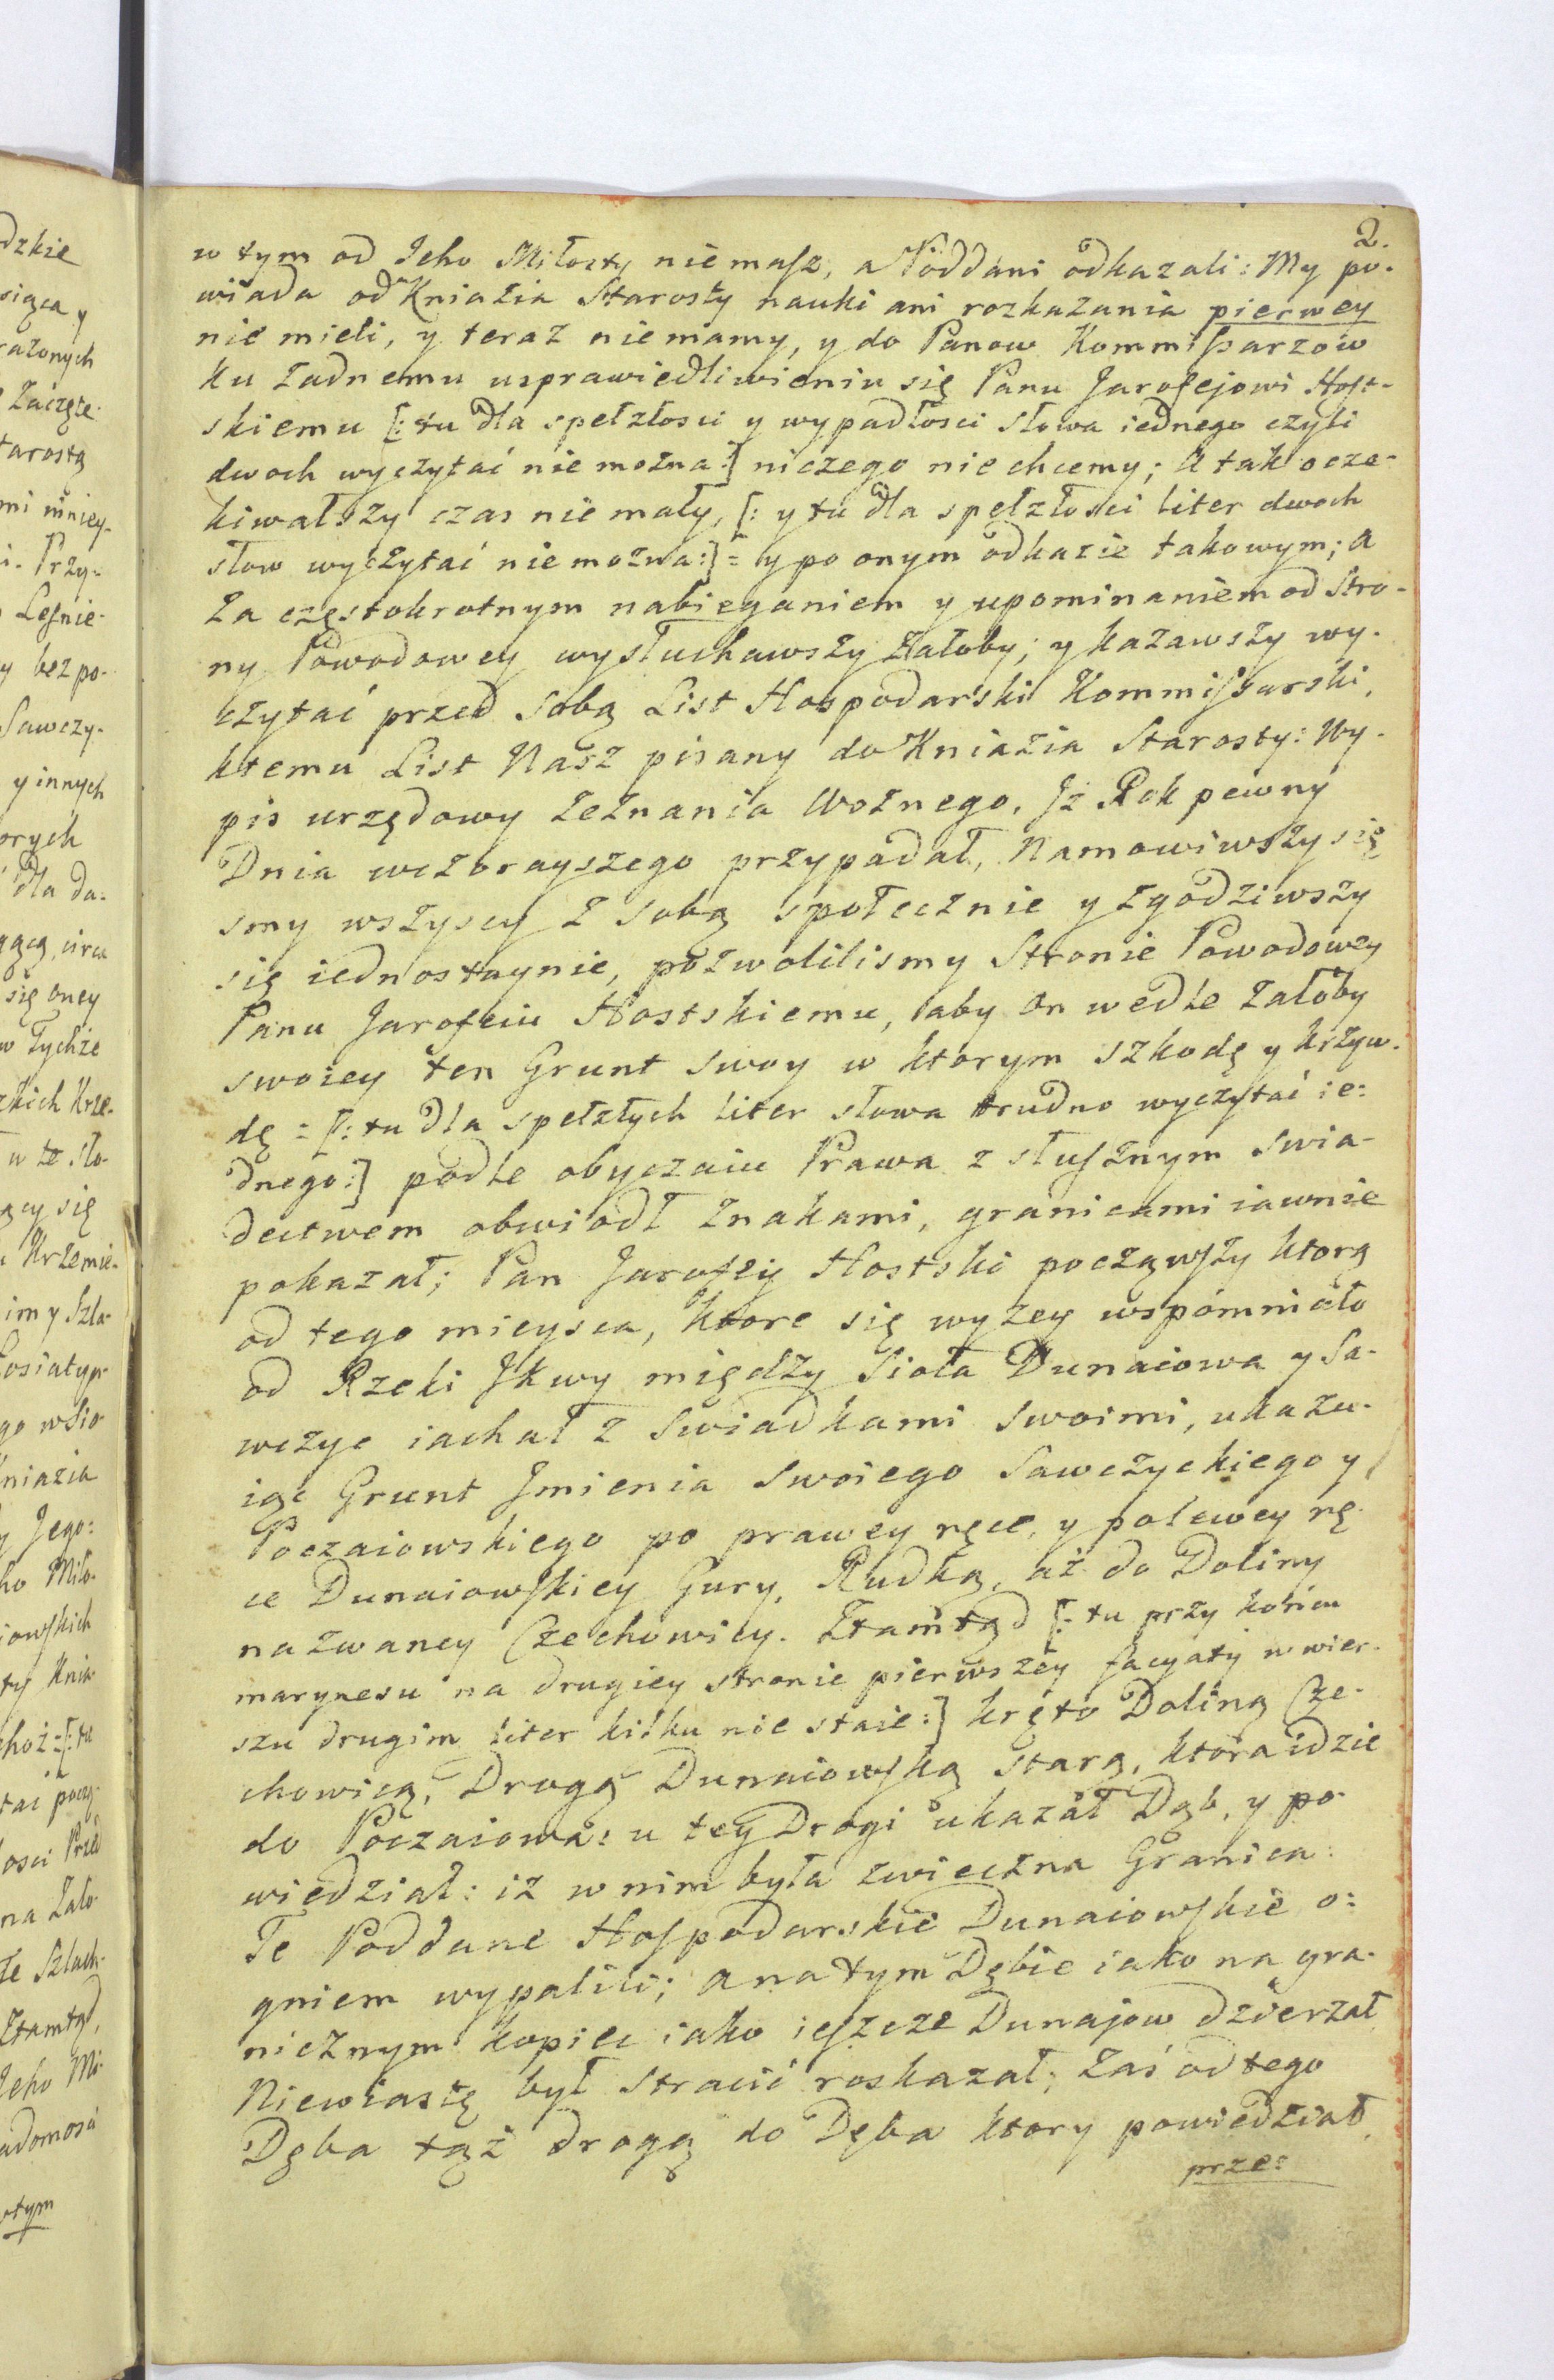 dzkie
siąca y
rażonych
Zaczęte.
tarostą
mi mniey-
i. Przy-
Leśnie-
y bez po-
Sawczy-
y innych
orych
dla da-
iącą, circa
się oney
w Tychże
zkich Krze-
w te sło-
ący się
Krzemie-
im y Szla-
go w Sio
niazia
y Jego:
ho Miło-
iowskich
ty Knia-
choż=[: tu
osci Przed
na Zało-
te Szlach-
Ztamtąd,
Jeho Mi-
adomość
w tym
2.
w tym od Jeho Miłosty niemasz, a Poddani odkazali: My po-
wiada od Kniazia Starosty nauki ani rozkazania pierwey
nie mieli, y teraz niemamy, y do Panow Kommissarzow
ku żadnemu usprawiedliwieniu się Panu Jarofejowi Host-
skiemu [: tu dla spełzłosci y wypadłosci słowa iednego czyli
dwoch wyczytać nie można:] niczego nie chcemy; A tak ocze-
kiwałszy czas nie mały, [: y tu dla spełzłosci liter dwoch
słow wyczytać nie można:] = y po onym odkazie takowym; a
za częstokrotnym nabieganiem y upominaniem od Stro-
ny Powodowey wysłuchawszy żałoby; y kazawszy wy-
czytać przed sobą List Hospodarski Kommissarski,
ktemu List Nasz pisany do Kniazia Starosty: Wy-
pis urzędowy zeznania Woznego, Jż Rok pewny
Dnia wczorayszego przypadał, Namowiwszy się
smy wszyscy z sobą społecznie y zgodziwszy
się iednostaynie, pozwolilismy Stronie Powodowey
Panu Jarofeiu Hostskiemu, aby on wedle żałoby
swoiey ten Grunt swoy w ktorym szkodę y krzyw-
dę = [: tu dla spełzłych liter słowa trudno wyczytać ie:
dnego:] podle obyczaiu Prawa z słusznym swia-
dectwem obwiodł znakami, granicami iawnie
pokazał; Pan Jarofey Hostski począwszy ktorą
od tego mieysca, ktore się wyżey wspomniało
od Rzeki Jkwy między Sioła Dunaiowa y Sa-
wczyc iachał z Swiadkami swoimi, ukazu-
iąc Grunt Jmienia swoiego Sawczyckiego y
Poczaiowskiego po prawey ręce, y po lewey rę-
ce Dunaiowskiey Gury, Rudką, aż do Doliny
nazwaney Czechowicy. Ztamtąd [: tu przy końcu
marynesu na drugiey stronie pierwszey facyaty w wier-
szu drugim liter kilku nie staie:] kręto Doliną Cze-
chowicą, Drogą Dunaiowską starą, ktora idzie
do Poczaiowa: u tey Drogi ukazał Dąb, y po-
wiedział: iż w nim była zwieczna Granica:
Te Poddane Hospodarskie Dunaiowskie o:
gniem wypalili; a na tym Dębie iako na gra-
nicznym kopiec iako ieszcze Dunajow dzierżał
Niewiastę był stracić roskazał; zaś od tego
Dęba tąż drogą do Dęba ktory powiedział,
prze: